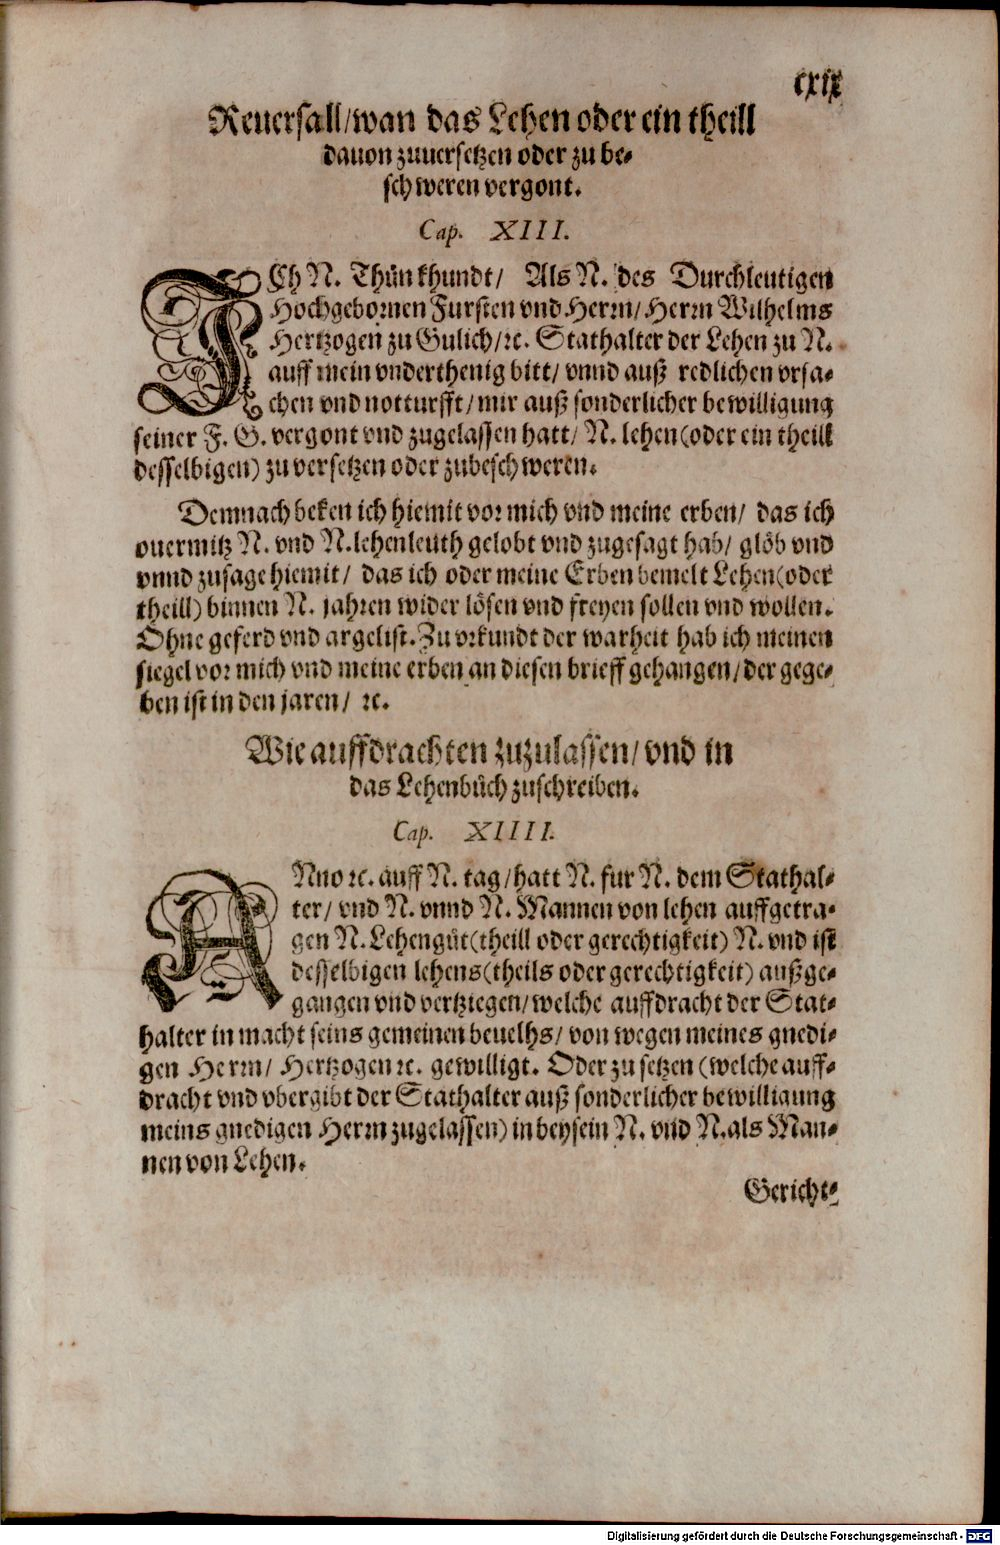 cxix
Reuersall/wan das Lehen oder ein theill
dauon zuuersetzen oder zu be-
schweren vergont.
Cap. XIII.
ICh N. Thůn khundt/ Als N. des Durchleutigen
Hochgebornen Fursten vnd Herrn/ Herrn Wilhelms
Hertzogen zu Gulich/ ꝛc. Stathalter der Lehen zu N.
auff mein vnderthenig bitt/ vnnd auß redlichen vrsa-
chen vnd notturfft/ mir auß sonderlicher bewilligung
seiner F. G. vergont vnd zugelassen hatt/ N. lehen (oder ein theill
desselbigen) zu versetzen oder zubeschweren.
Demnach beken ich hiemit vor mich vnd meine erben/ das ich
ouermitz N. vnd N. lehenleuth gelobt vnd zugesagt hab/ glöb vnd
vnnd zusage hiemit/ das ich oder meine Erben bemelt Lehen (oder
theill) binnen N. jahren wider lösen vnd freyen sollen vnd wollen.
Ohne geferd vnd argelist. Zu vrkundt der warheit hab ich meinen
siegel vor mich vnd meine erben an diesen brieff gehangen/ der gege-
ben ist in den jaren/ ꝛc.
Wie auffdrachten zuzulassen/ vnd in
das Lehenbůch zuschreiben.
Cap. XIIII.
ANno ꝛc. auff N. tag/ hatt N. fur N. dem Stathal-
ter/ vnd N. vnnd N. Mannen von lehen auffgetra-
gen N. Lehengůt (theill oder gerechtigkeit) N. vnd ist
desselbigen lehens (theils oder gerechtigkeit) außge-
gangen vnd vertziegen/ welche auffdracht der Stat-
halter in macht seins gemeinen beuelhs/ von wegen meines gnedi-
gen Herrn/ Hertzogen ꝛc. gewilligt. Oder zu setzen (welche auff-
dracht vnd vbergibt der Stathalter auß sonderlicher bewilligung
meins gnedigen Herrn zugelassen) in beysein N. vnd N. als Man-
nen von Lehen.
Gericht-
Digitalisierung gefördert durch die Deutsche Forschungsgemeinschaft - DFG